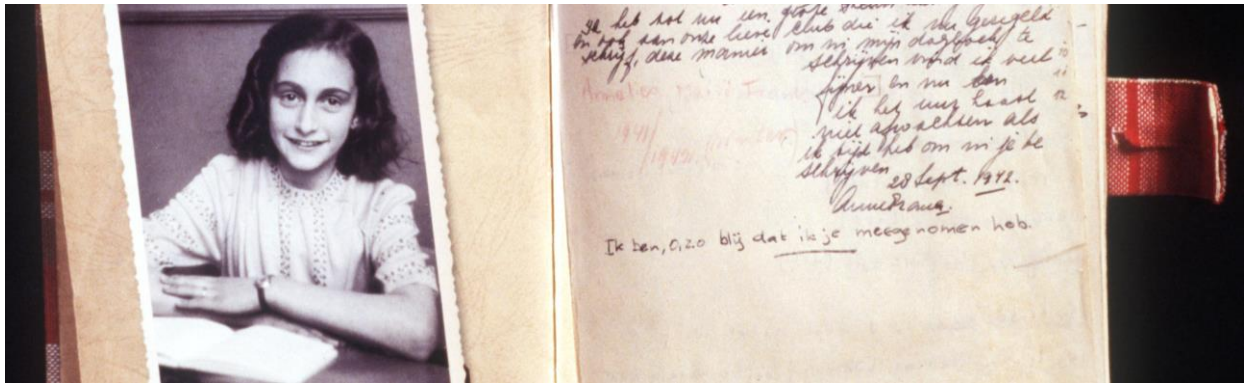 Ik heb tot nu een grote steun
en ook aan onze lieve club die ik nu geregeld
schrijf, deze manier om in mijn dagboek te
schrijven vind ik veel
fijner en nu kan
ik het uur haast
niet afwachten als
ik tijd heb om in je te
schrijven
28 Sept. 1942.
Anne Frank.
Ik ben, o, zo blij dat ik je meegenomen heb.
1941/
1942.